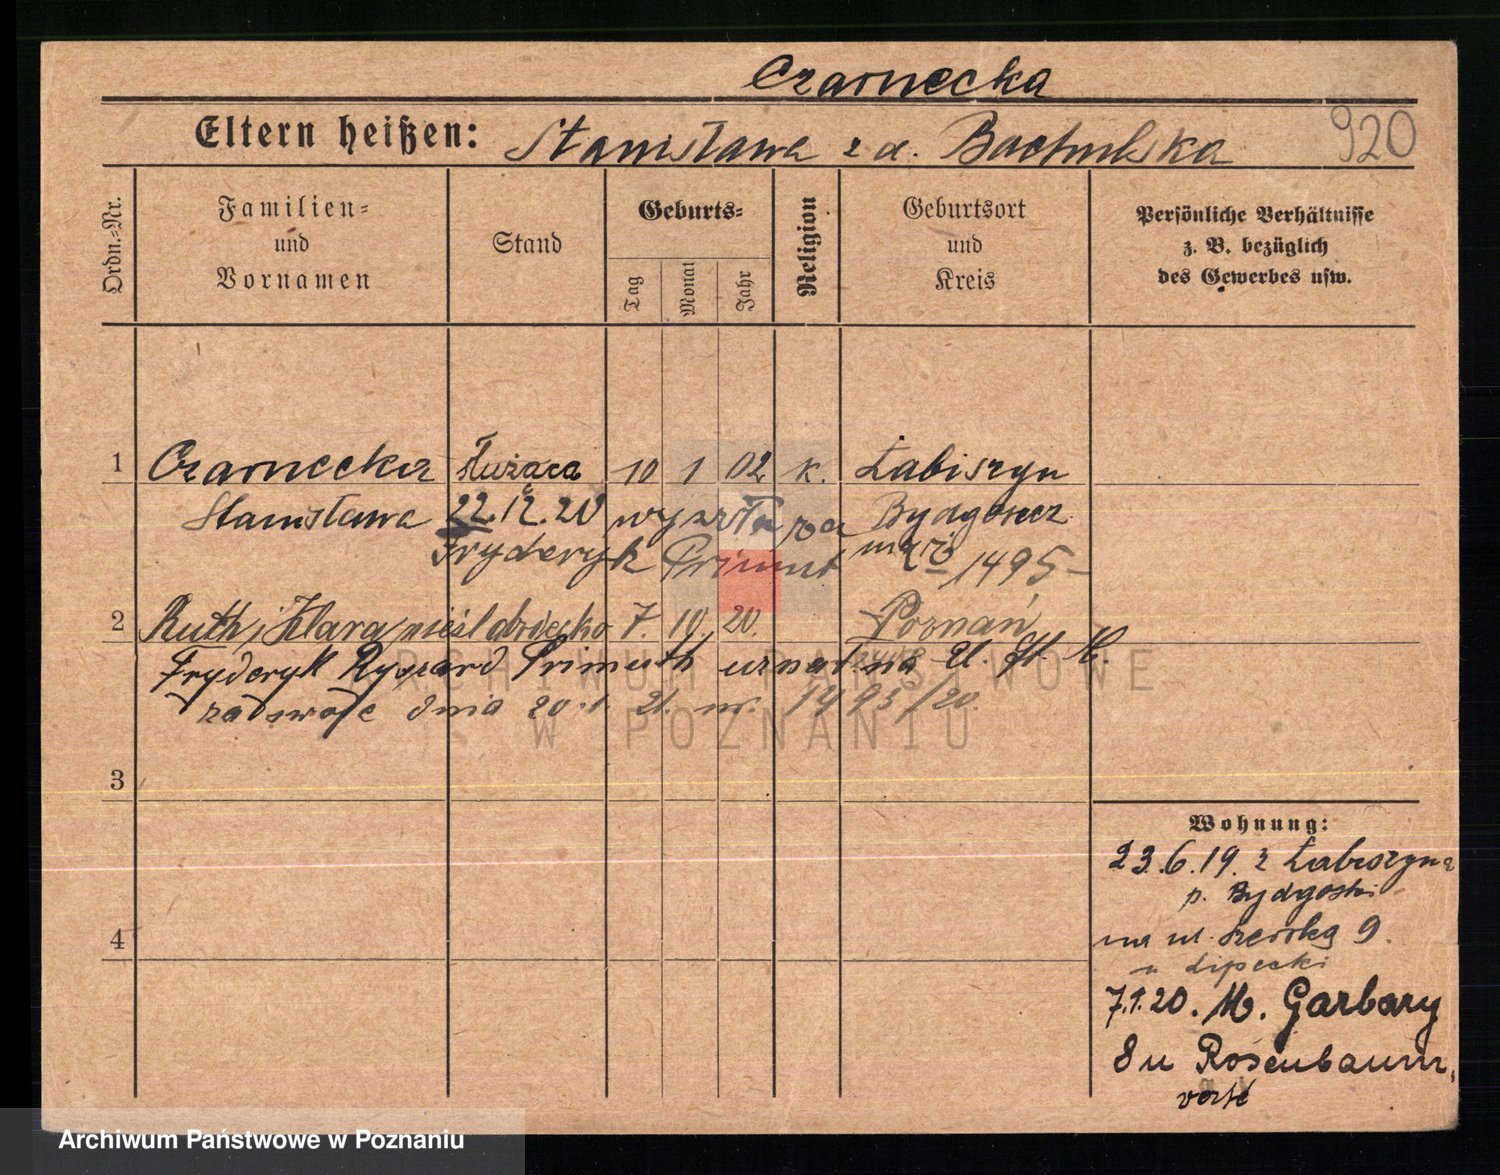 Czarnecka
Eltern heißen: Stanisława z d. Bachulska 920
Ordn.-Nr.
Familien- und Vornamen
Stand
Geburts-
Tag Monat Jahr
Religion
Geburtsort und Kreis
Persönliche Verhältnisse z. B. bezüglich des Gewerbes usw.
1 Czarnecka służąca 10 1 02 k. Łabiszyn
Stanisława 22.12.20 wyszła za Bydgoszcz
Fryderyk Primut 1495
2 Ruth i Klara nieśl dziecko 7. 10. 20. Poznań
Fryderyk Ryszard Primuth uznał na U. St. C.
za swoje dnia 20.1.21. nr. 1493/20.
3
4
Wohnung:
23.6.19. z Łabiszyna
p. Bydgoski
na ul. 9.
u Lipecki
7.1.20. M. Garbary
8 u Rosenbaum.
verte
ARCHIWUM PAŃSTWOWE
W POZNANIU
Archiwum Państwowe w Poznaniu